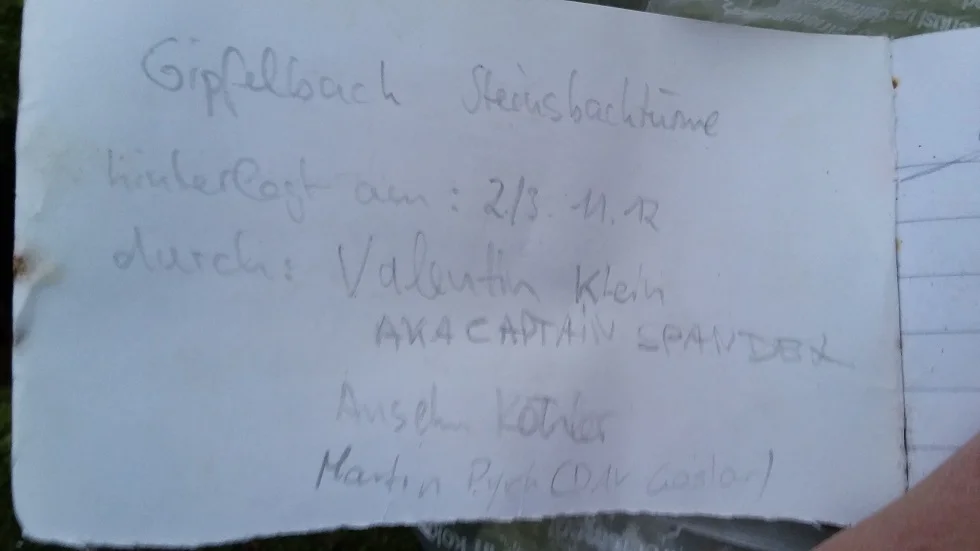 Gipfelbach Steinsbachtürme
hinterlegt am: 2/3. 11. 12
durch: Valentin Klein
AKA CAPTAIN SPANDEX
Anselm Köhler
Martin (DAV Goslar)